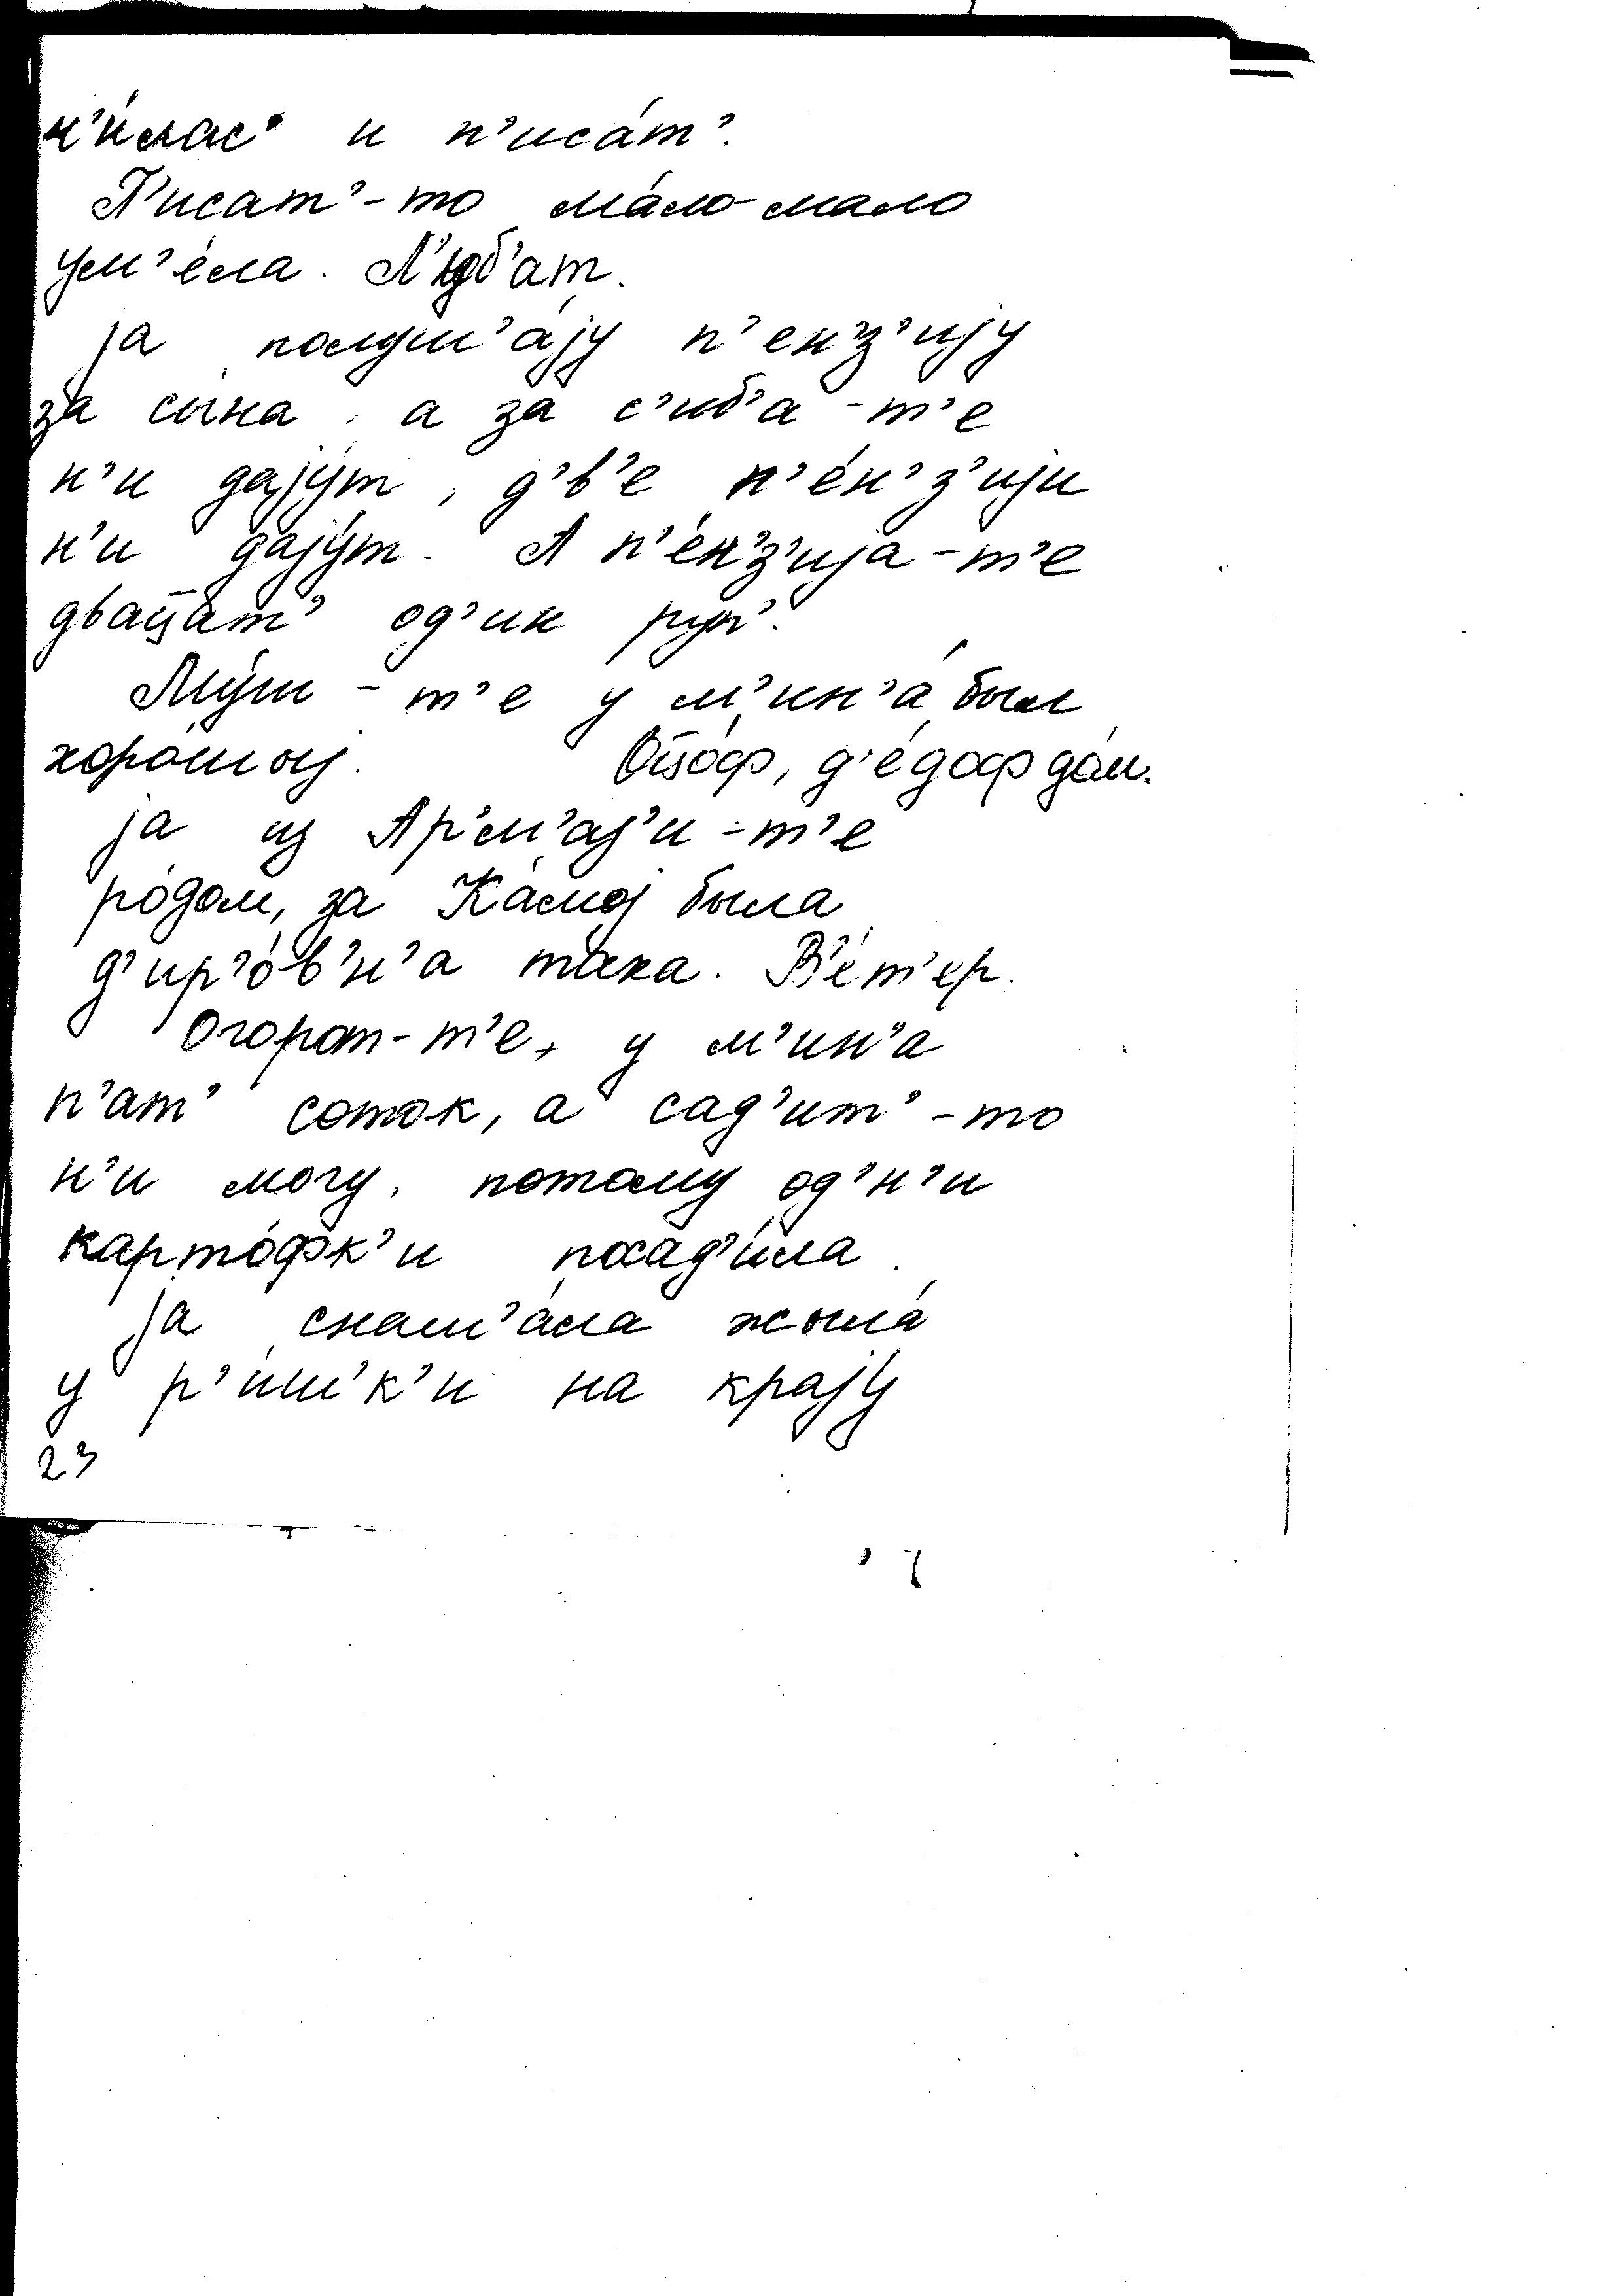 н’и́лас’ и п’иса́т’.
П’исат’-то ма́ло-мало
ум’е́ла. Л’у́б’ат.
jа полуш’а́jу п’ен’з’иjу
за сы́на, а за с’иб’а-т’е
н’и даjу́т, д’в’е п’е́н’з’иjи
н’и даjу́т. А п’е́н’з’иjа-т’е
двацат’ од’ин руп’.
Му́ш-т’е у м’ин’а́ был
хоро́шыj. Оцо́ф, д’е́доф до́м.
jа из Ар’м’аз’и-т’е
ро́дом, за Ка́моj была
д’ир’о́в’н’а така. В’е́т’ер.
Огорот-т’е, у м’ин’а
п’ат’ соток, а сад’ит’-то
н’и могу, потому од’н’и
карто́фк’и посад’и́ла.
jа снаш’а́ла жыла́
у р’и́ш’к’и на краjу́
23